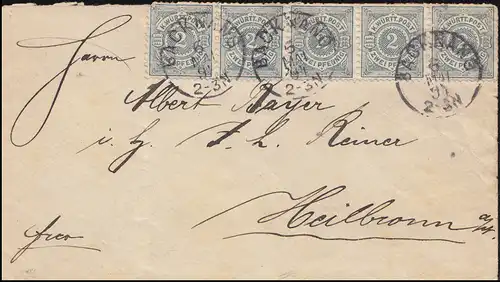 K. WÜRTT. POST 2 ZWEI PFENNIG
K. WÜRTT. POST 2 ZWEI PFENNIG
K. WÜRTT. POST 2 ZWEI PFENNIG
K. WÜRTT. POST 2 ZWEI PFENNIG
K. WÜRTT. POST 2 ZWEI PFENNIG
BACKNANG
5
91
2-3N
BACKNANG
5
91
2-3N
BACKNANG
5
91
2-3N
Herrn
Albert Bayer
i. H. F. L. Reiner
Heilbronn a/N
frco